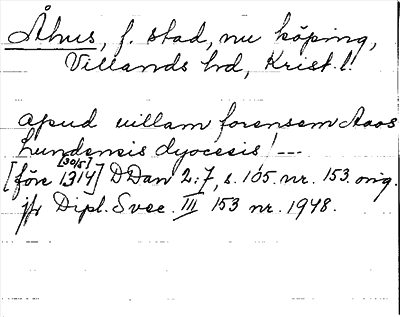 Åhus, f. stad, nu köping,
Villands hd, Krist. l.
apud uillam forensem Aaos
Lundensis dyocesis! ---
[30/5]
[före 1314] DDan 2:7, s. 105. nr. 153. orig.
jfr Dipl. Svec. III 153 nr. 1948.